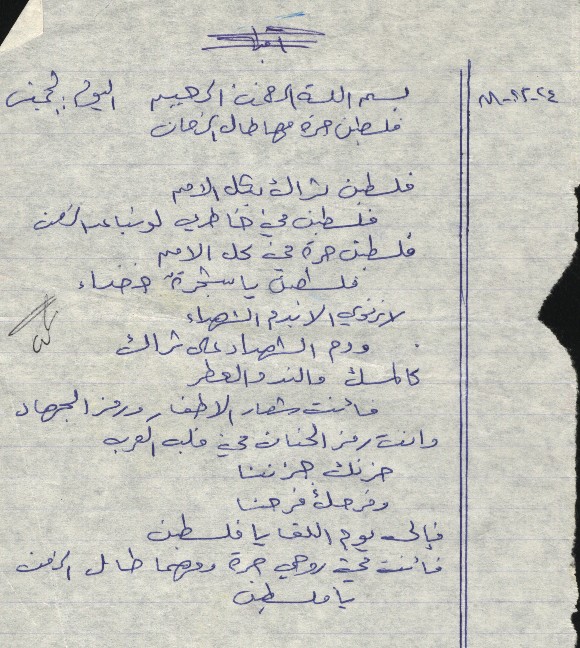 ٨٨-١٢-٢٤
بسم الله الرحمن الرحيم اليوم: الخميس
فلسطين حرة مهما طال الزمان
فلسطين ثراك بكل الامم
فلسطين في خاطري لو تباعد الزمن
فلسطين حرة في كل الامم
فلسطين يا شجرة خضراء
لا ترتوي الا بدم الشهداء
ودم الشهداء على ثراك
كالمسك والند والعطر
فأنت شعار الاطفال ورمز الجهاد
وانت رمز الحنان في قلب العرب
حزنك حزننا
وفرحك فرحنا
فإلى يوم اللقا يا فلسطين
فأنت في روحي حرة ومهما طال الزمن
يا فلسطين